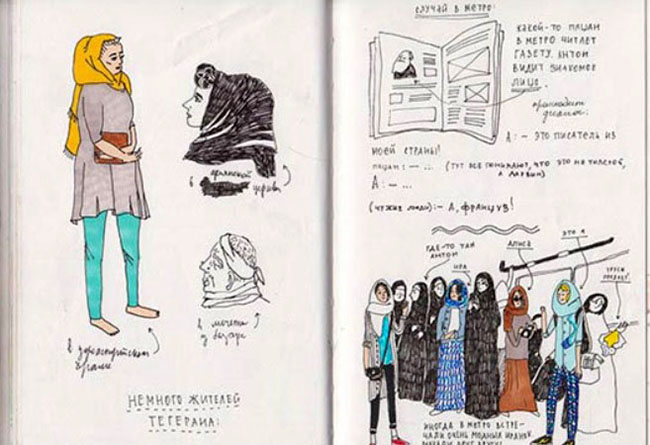 в армянской
церкви
в мечети
у базара
в зороастрийском
храме
НЕМНОГО ЖИТЕЛЕЙ
ТЕГЕРАНА:
СЛУЧАЙ В МЕТРО:
КАКОЙ-ТО ПАЦАН
В МЕТРО ЧИТАЕТ
ГАЗЕТУ. АНТОН
ВИДИТ ЗНАКОМОЕ
ЛИЦО.
происходит
диалог:
А: – ЭТО ПИСАТЕЛЬ ИЗ
МОЕЙ СТРАНЫ!
ПАЦАН: – ... (ТУТ ВСЕ ПОНИМАЮТ, ЧТО ЭТО НЕ ТОЛСТОЙ,
А ДАРВИН)
А: – ...
(ЧУЖИЕ ЛЮДИ): – А, ФРАНЦУЗ!
ГДЕ-ТО ТАМ
АНТОН
ИРА
АЛИСА
ЭТО Я
ТРУСЫ
ПРОДАЕТ!
ИНОГДА В МЕТРО ВСТРЕ-
ЧАЛИ ОЧЕНЬ МОДНЫХ ИРАНОК